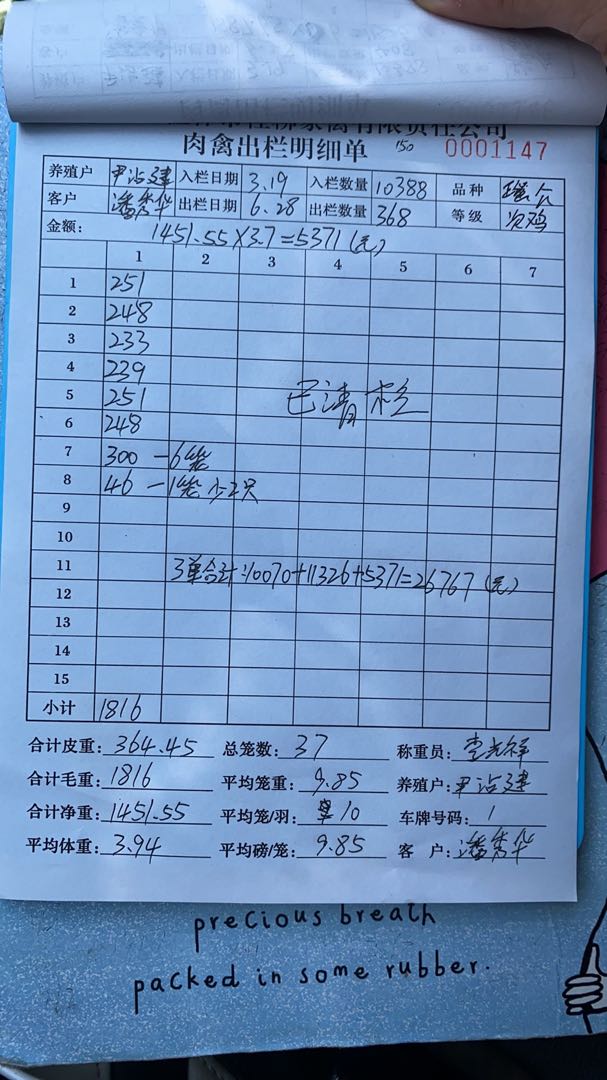 禽有限责任公司
肉禽出栏明细单 150 0001147
养殖户 入栏日期 3.19 入栏数量 10388 品种
客户 潘秀华 出栏日期 6.28 出栏数量 368 等级 次鸡
金额: 1451.55×3.7=5371(元)
1 2 3 4 5 6 7
1 251
2 248
3 233
4 239
5 251 已清栏
6 248
7 300 —6笼
8 46 —1笼少2只
9
10
11 3单合计:10070+11326+5371=26767(元)
12
13
14
15
小计 1816
合计皮重: 364.45 总笼数: 37 称重员:
合计毛重: 1816 平均笼重: 9.85 养殖户:
合计净重: 1451.55 平均笼/羽: 10 车牌号码: 1
平均体重: 3.94 平均磅/笼: 9.85 客 户: 潘秀华
precious breath
packed in some rubber.